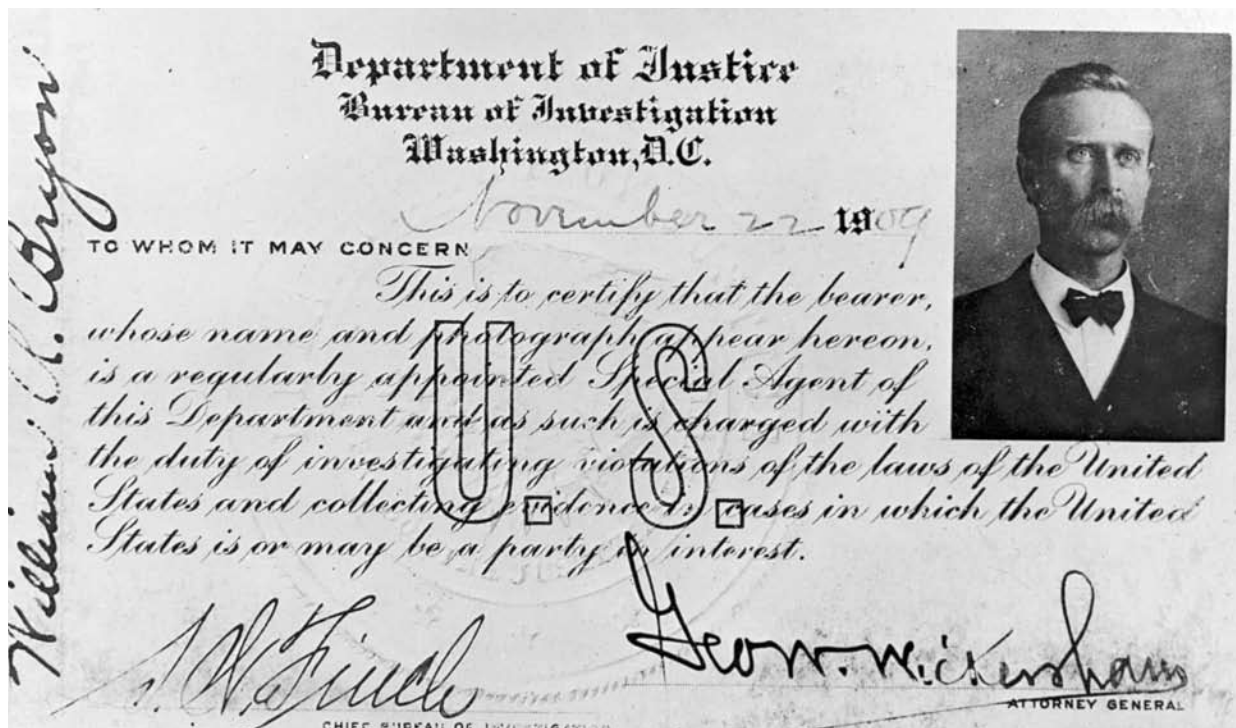 Department of Justice
Bureau of Investigation
Washington, D.C.
November 22 1909
TO WHOM IT MAY CONCERN
This is to certify that the bearer,
whose name and photograph appear hereon,
is a regularly appointed Special Agent of
this Department and as such is charged with
the duty of investigating violations of the laws of the United
States and collecting evidence in cases in which the United
States is or may be a party in interest.
U.S.
William A. Bryon
S. W. Finch
CHIEF BUREAU OF INVESTIGATION
Geo. W. Wickersham
ATTORNEY GENERAL